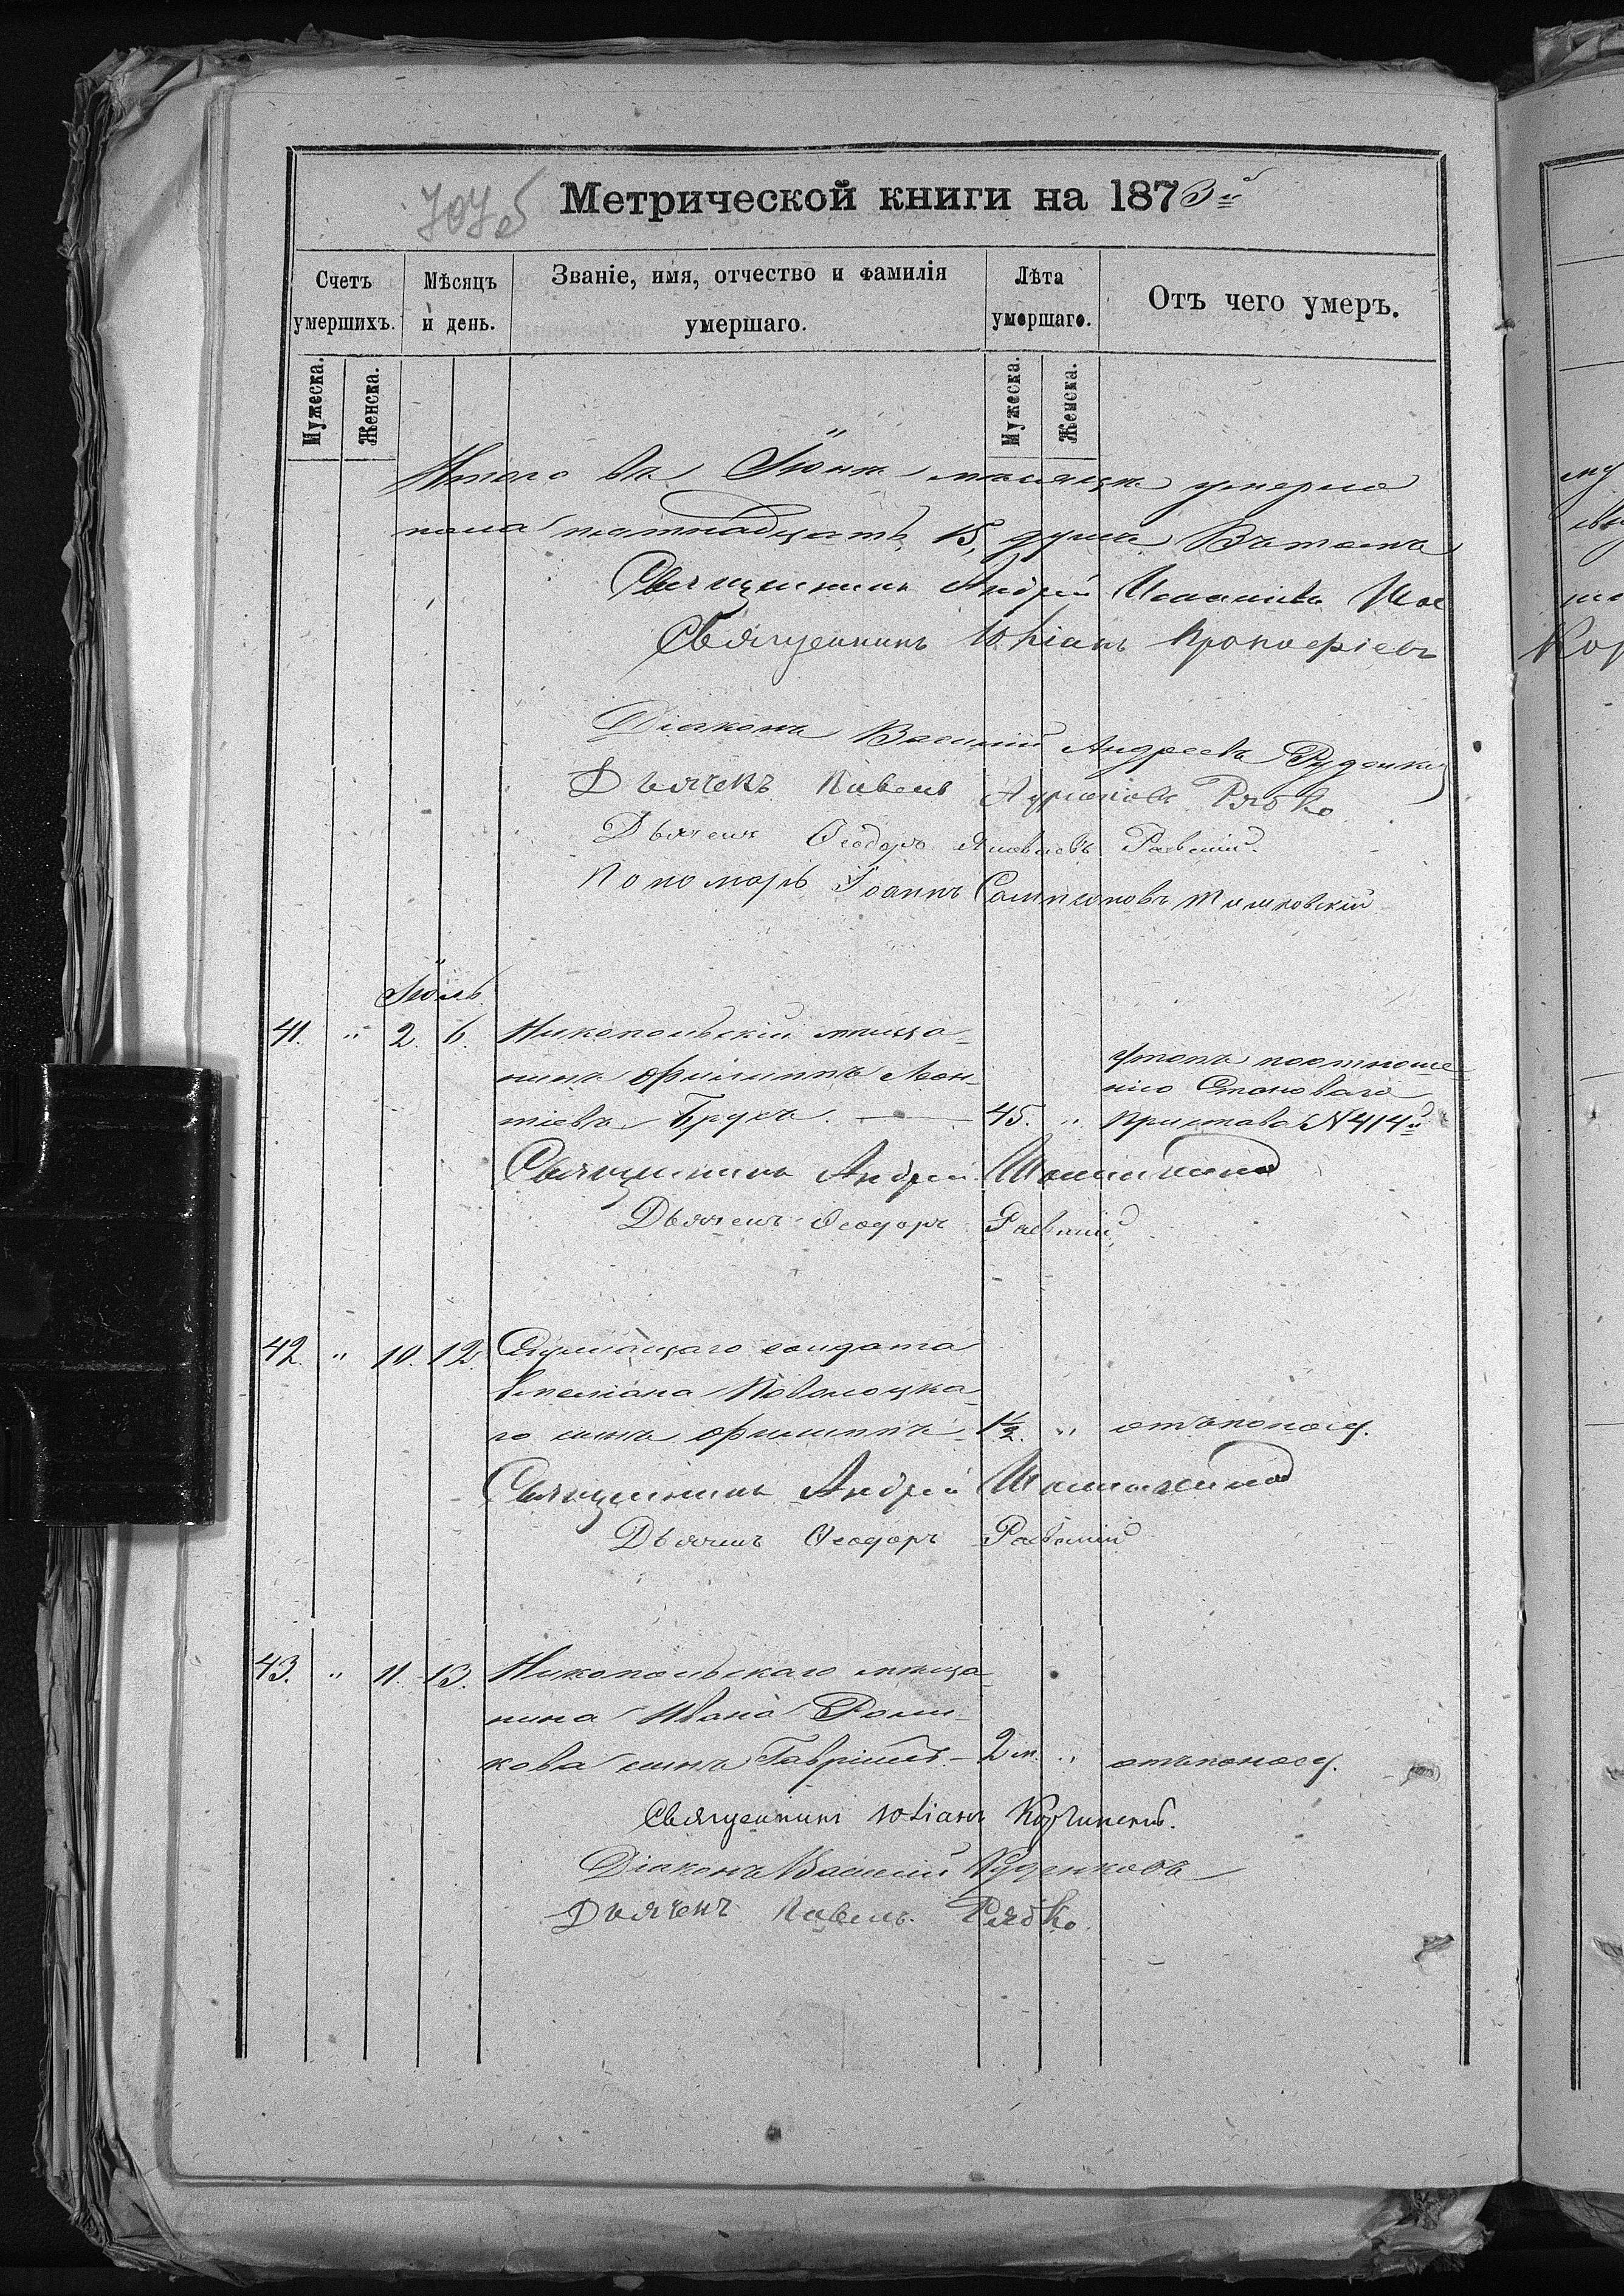 707 б
Метрической книги на 1873й
Счетъ умершихъ.
Мѣсяцъ и день.
Званіе, имя, отчество и фамилія умершаго.
Лѣта умершаго.
Отъ чего умеръ.
Мужеска. Женска. Мужеска. Женска.
Итого въ Іюнѣ мѣсяцѣ умерло
пола пятнадцать 15, душъ Въ томъ
Священникъ Андрей Иоанновъ
Священникъ Юліанъ Прокофіевъ
Діаконъ Василій Андреевъ Руденко
Дьячекъ Павелъ Рябко
Дьячекъ Ѳеодоръ Яковлевъ Раевскій.
Пономарь Іоаннъ Сампсоновъ Тишковскій
Іюль
41. " 2. 6. Никопольскій мѣща-
нинъ Филиппъ Леон-
тіевъ Брухъ. — 45. "
утопъ поотноше-
нію Становаго
Пристава N 414й
Священникъ Андрей
Дьячекъ Ѳеодоръ Раевскій
42. " 10. 12. Служащаго солдата
Емеліана Поволоцка-
го сынъ Филиппъ - 1/2. " отъ поносу.
Священникъ Андрей
Дьячекъ Ѳеодоръ Раевскій
43. " 11. 13. Никопольскаго мѣща-
нина Ивана
кова сынъ Гавріилъ - 2 м. " отъ поносу.
Священникъ Юліанъ
Діаконъ Василій Руденковъ
Дьячекъ Павелъ. Рябко.